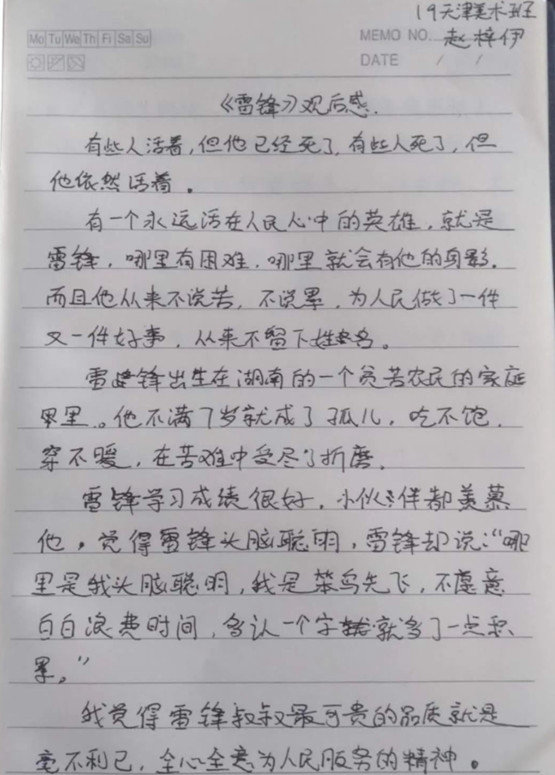 19天津美术班
Mo Tu We Th Fi Sa Su
MEMO NO. 赵梓伊
DATE / /
《雷锋》观后感.
有些人活着,但他已经死了,有些人死了,但
他依然活着。
有一个永远活在人民心中的英雄,就是
雷锋,哪里有困难,哪里就会有他的身影.
而且他从来不说苦,不说累,为人民做了一件
又一件好事,从来不留下姓名。
雷锋出生在湖南的一个贫苦农民的家庭
里。他不满7岁就成了孤儿,吃不饱,
穿不暖,在苦难中受尽了折磨。
雷锋学习成绩很好,小伙伴都羡慕
他,觉得雷锋头脑聪明,雷锋却说:“哪
里是我头脑聪明,我是笨鸟先飞,不愿意
白白浪费时间,多认一个字就多了一点积
累。”
我觉得雷锋叔叔最可贵的品质就是
毫不利己,全心全意为人民服务的精神。